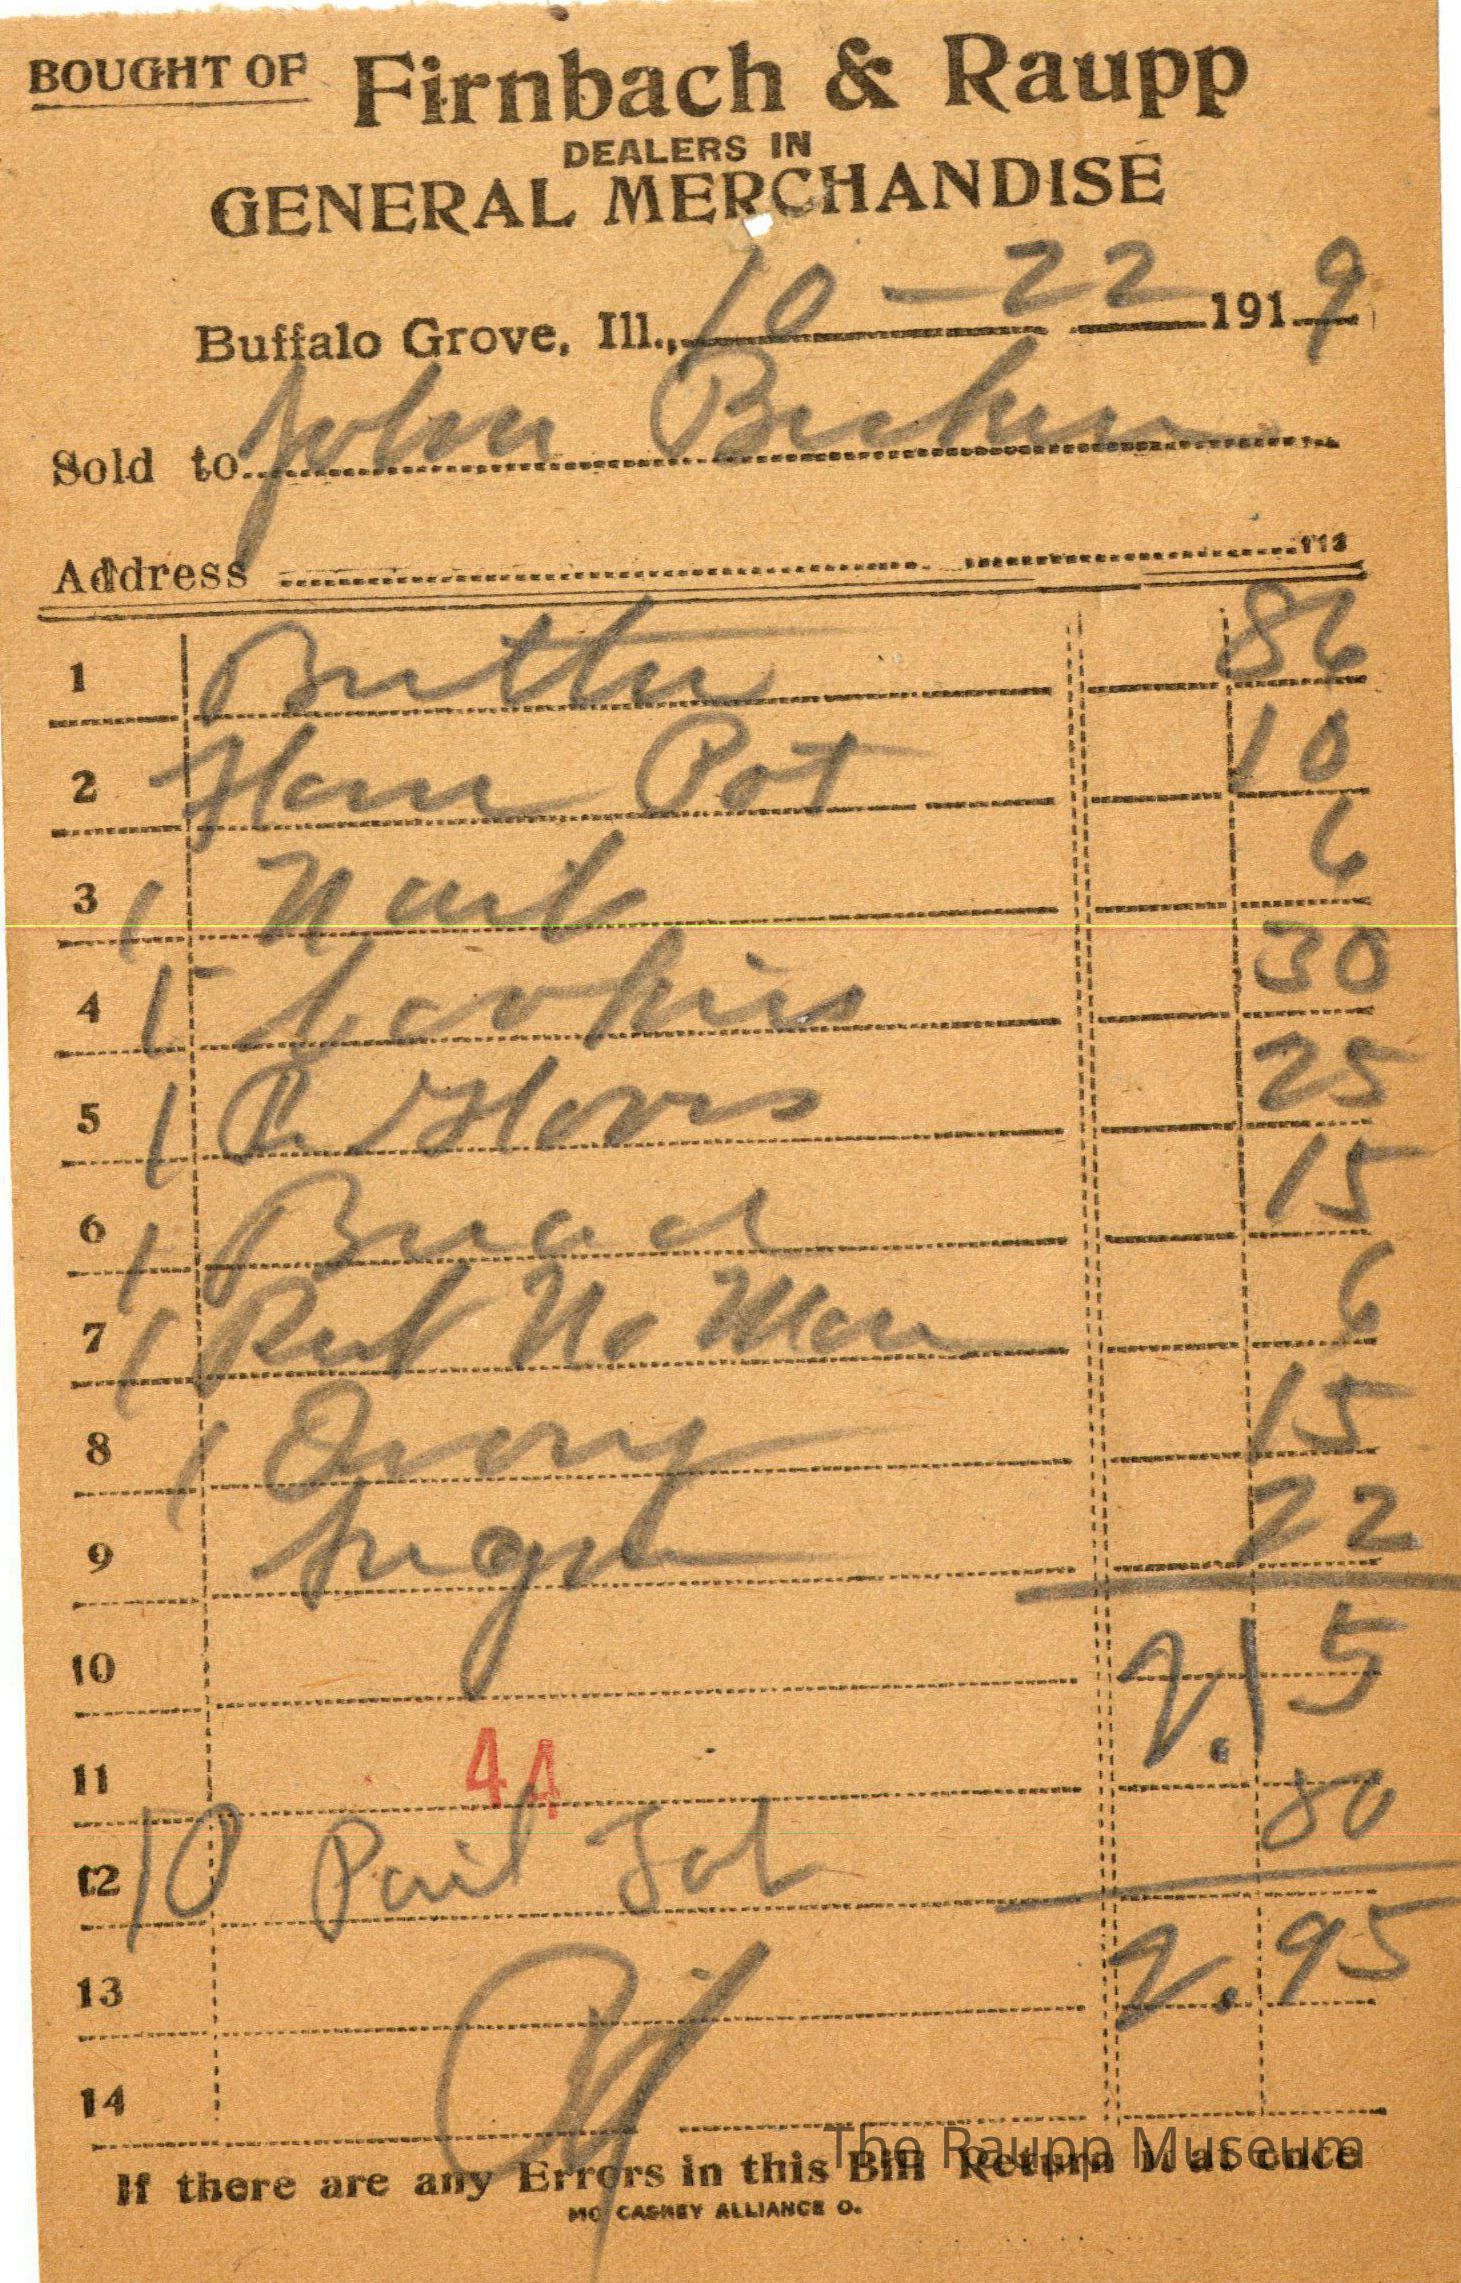 BOUGHT OF Firnbach & Raupp
DEALERS IN
GENERAL MERCHANDISE
Buffalo Grove, Ill., 10-22 1919
Sold to John
Address
113
1 Butter 86
2 Pot 10
3 1 Nails 6
4 1 Cookies 30
5 1 P Gloves 25
6 1 Bread 15
7 1 6
8 1 Ivory 15
9 Sugar 22
10 2.15
11 44 80
12 10 Pail
13 2.95
14
If there are any Errors in this Bill Return it at once
The Raupp Museum
MC CASKEY ALLIANCE O.